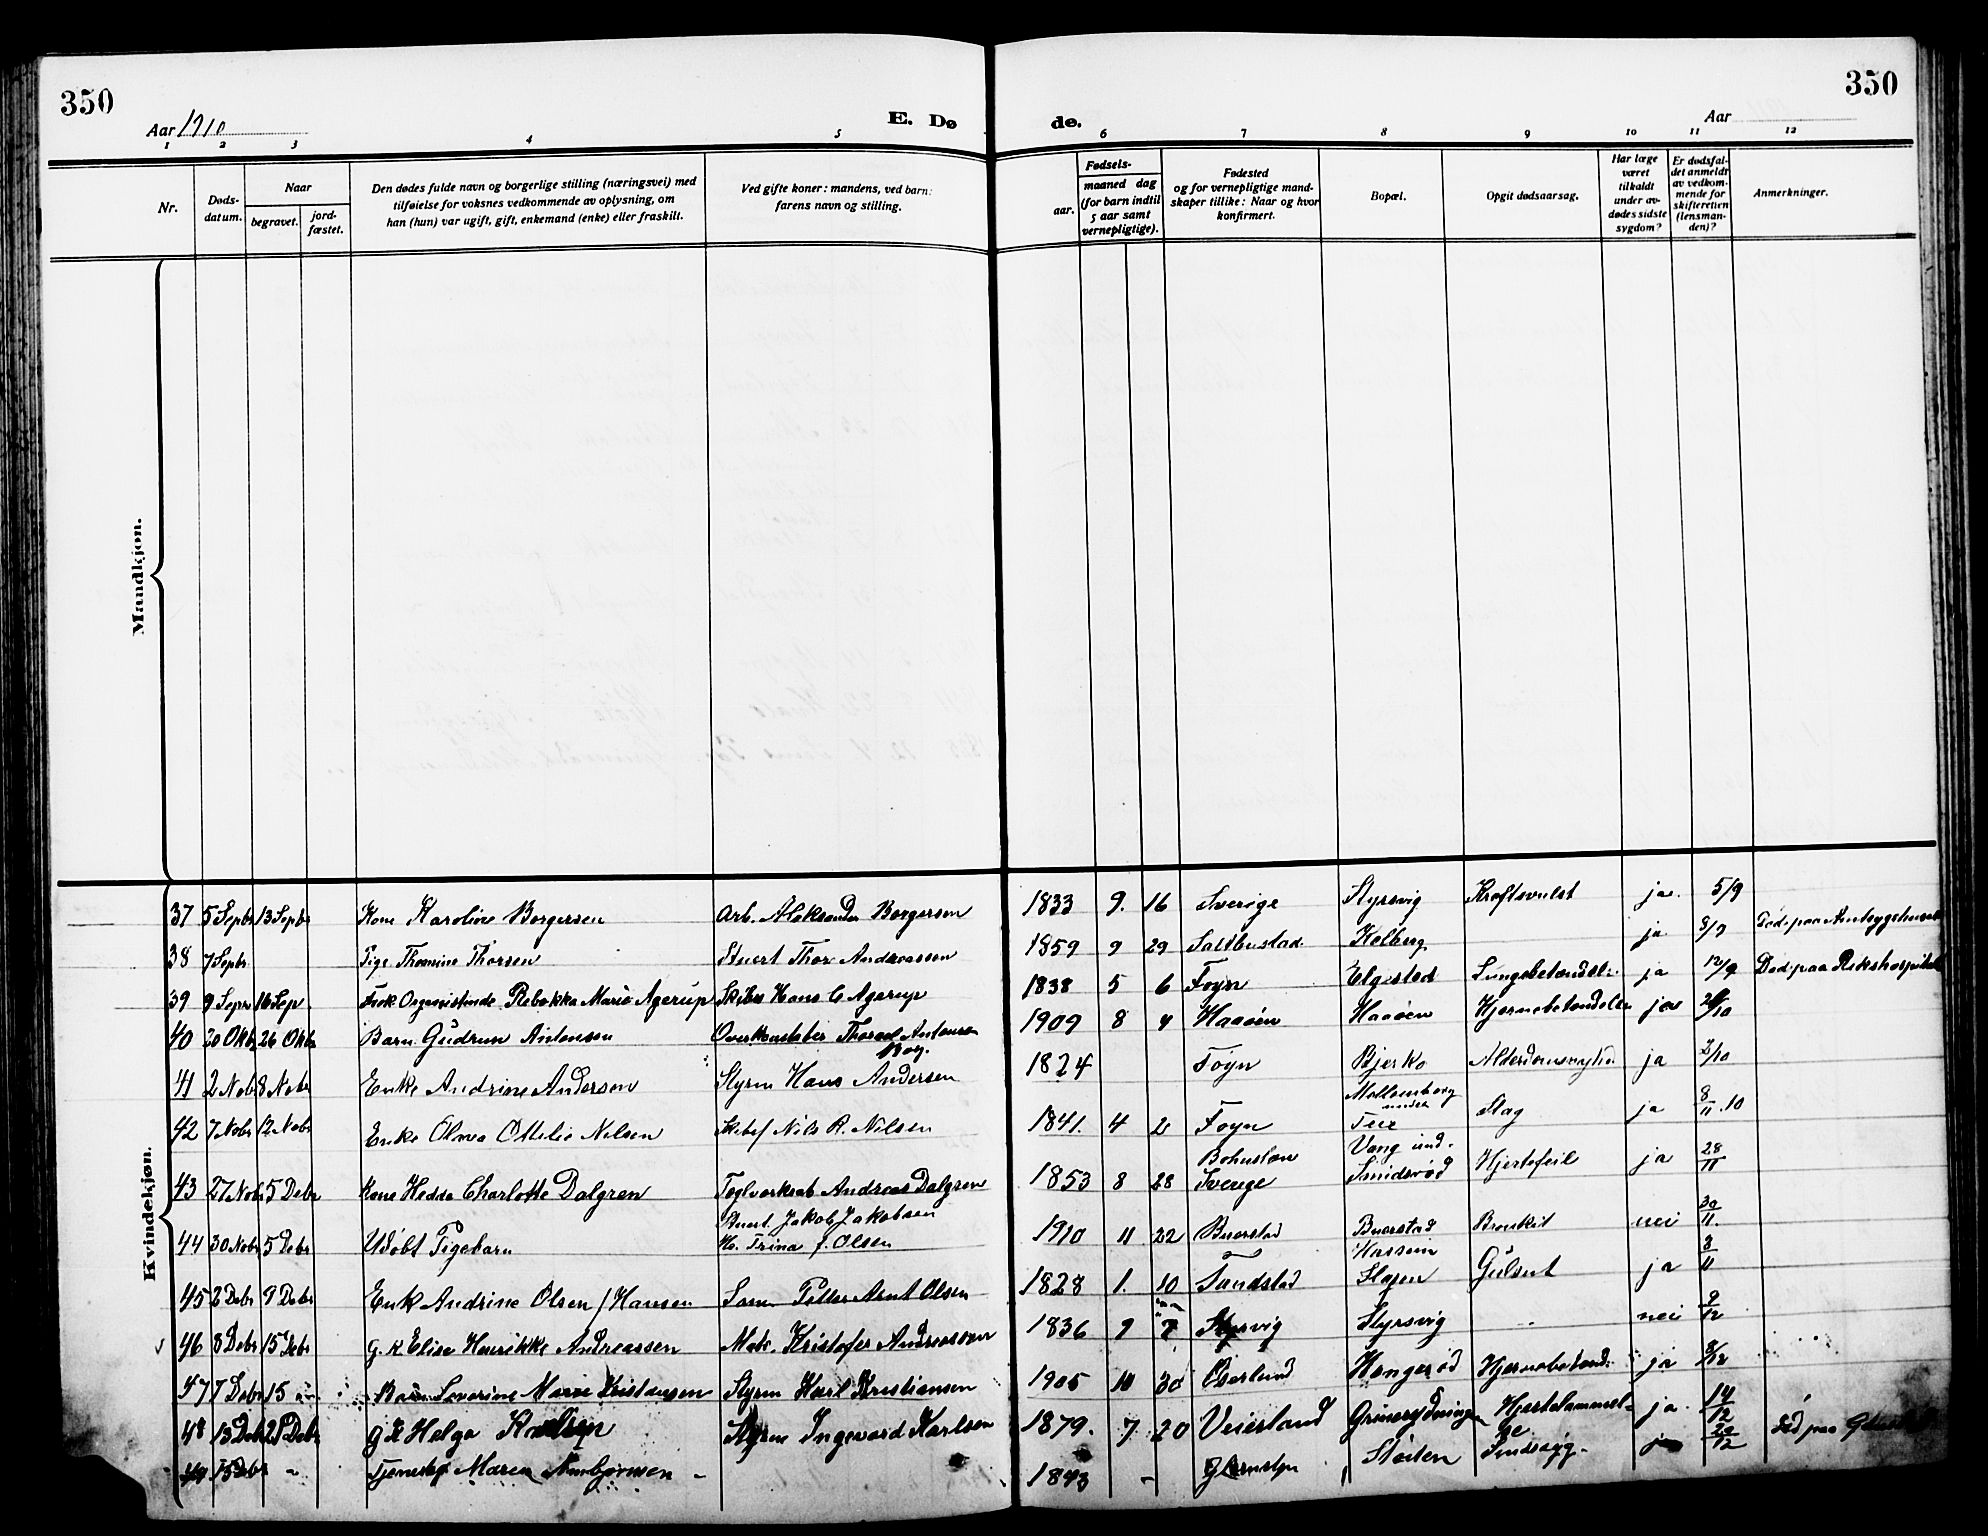 350
Aar 1910
E. Dø
1 2 3 4 5
Nr.
Døds-
datum.
Naar
begravet.
jord-
fæstet.
Den dødes fulde navn og borgerlige stilling (næringsvei) med
tilføielse for voksnes vedkommende av oplysning, om
han (hun) var ugift, gift, enkemand (enke) eller fraskilt.
Ved gifte koner: mandens, ved barn:
farens navn og stilling.
350
de.
Aar
6 7 8 9 10 11 12
aar.
Fødsels-
maaned dag
(for barn indtil
5 aar samt
vernepligtige).
Fødested
og for vernepligtige mand-
skaper tillike: Naar og hvor
konfirmert.
Bopæl.
Opgit dødsaarsag.
Har læge
været
tilkaldt
under av-
dødes sidste
sygdom?
Er dødsfal-
det anmeldt
av vedkom-
mende for
skifteretten
(lensman-
den)?
Anmerkninger.
Mandkjøn.
Kvindekjøn.
37 5 Sepbr 13 Sepbr Kone Karoline Borgersen Arb. Aleksander Borgersen 1833 9. 16 Sverige Styrsvig Kræftsvulst ja. 5/9
38 7 Sepbr Pige Thomine Thorsen Stuert Thor Andreassen 1859 9 29 Kolberg ja 8/9 Død paa Amtsygehuset
39 9 Sepr 16 Sep Rebekka Marie Agerup Hans C Agerup 1838 5 6 Føyn Elgestad Lungebetændelse ja 12/9 Død paa Rikshospitalet
40 20 Okbr 26 Okbr Barn Gudrun Antonsen Overkonstabel Thorvald Antonsen 1909 8 4 Haaøen Haaøen Hjernebetændelse ja
41 2 Nobr 8 Nobr Enke Andrine Andersen Styrm Hans Andersen 1824 Føyn Bjerkø ja
42 7 Nobr 12 Nobr Enke Olava Ottilie Nilsen Nils R. Nilsen 1841. 4 2 Føyn Teie Slag ja 8/11.10
43 27 Nobr 5 Debr Kone Hedda Charlotte Dalgren Andreas Dalgren 1853 8 28 Bohuslæn
Sverige Vang und.
Smidsrød Hjertefeil ja 28/11
44 30 Nobr 5 Debr Udøbt Pigebarn Stuert Jakob Jakobsen
H. Trina f. Olsen 1910 11 22 Buerstad Buerstad Bronkit nei 30/11.
45 2 Debr 9 Debr Enk Andrine Olsen f Hansen Petter Arnt Olsen 1828 1. 10 Sandstad Slagen Gulsot ja 3/11
46 8 Debr 15 Debr g. K Elise Henrikke Andreassen Kristofer Andreassen 1836 9 7 Styrsvig Styrsvig nei 9/12
47 7 Debr 15 Barn Severine Marie Kristiansen Styrm Karl Kristiansen 1905 10 30 Hjernebetænd. ja 8/12
48 13 Debr 21 Debr g K Helga Karlsen Styrm Ingevard Karlsen 1879. 7 20 Veierland Hjertelammel-
se ja. 14/12
49 15 Debr Maren 1843 Støiten Sindssyg. ja 20/12 Død paa